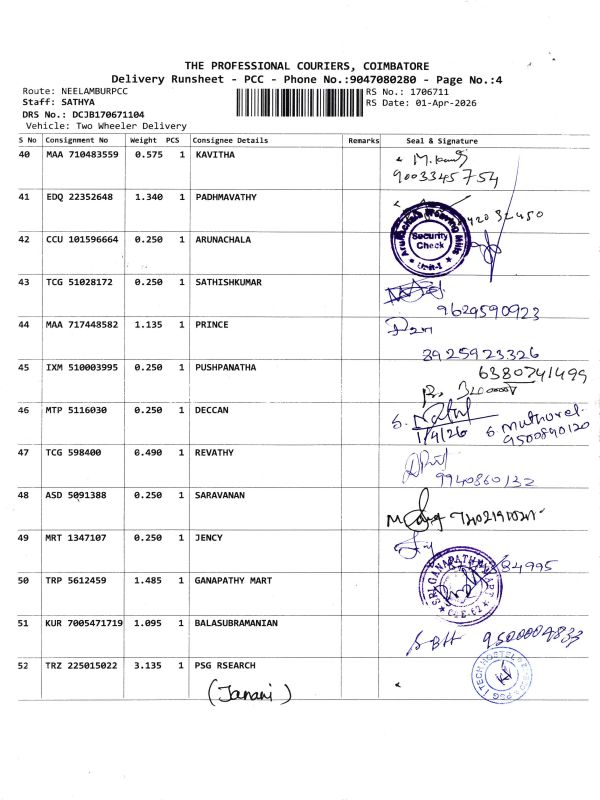 THE PROFESSIONAL COURIERS, COIMBATORE
Delivery Runsheet - PCC - Phone No.:9047080280 - Page No.:4
Route: NEELAMBURPCC
Staff: SATHYA
DRS No.: DCJB170671104
Vehicle: Two Wheeler Delivery
RS No.: 1706711
RS Date: 01-Apr-2026
S No Consignment No Weight PCS Consignee Details Remarks Seal & Signature
40 MAA 710483559 0.575 1 KAVITHA
9003345754
41 EDQ 22352648 1.340 1 PADHMAVATHY
42 CCU 101596664 0.250 1 ARUNACHALA
Security Check
Unit-I
43 TCG 51028172 0.250 1 SATHISHKUMAR
9629590923
44 MAA 717448582 1.135 1 PRINCE
8925923326
45 IXM 510003995 0.250 1 PUSHPANATHA
6380741499
46 MTP 5116030 0.250 1 DECCAN
1/4/26
S. Muthuvel
9500890120
47 TCG 598400 0.490 1 REVATHY
9940860132
48 ASD 5091388 0.250 1 SARAVANAN
49 MRT 1347107 0.250 1 JENCY
84995
50 TRP 5612459 1.485 1 GANAPATHY MART
SRI GANAPATHY MART
CBE-62
51 KUR 7005471719 1.095 1 BALASUBRAMANIAN
SBH 9500004833
52 TRZ 225015022 3.135 1 PSG RSEARCH
(Janani)